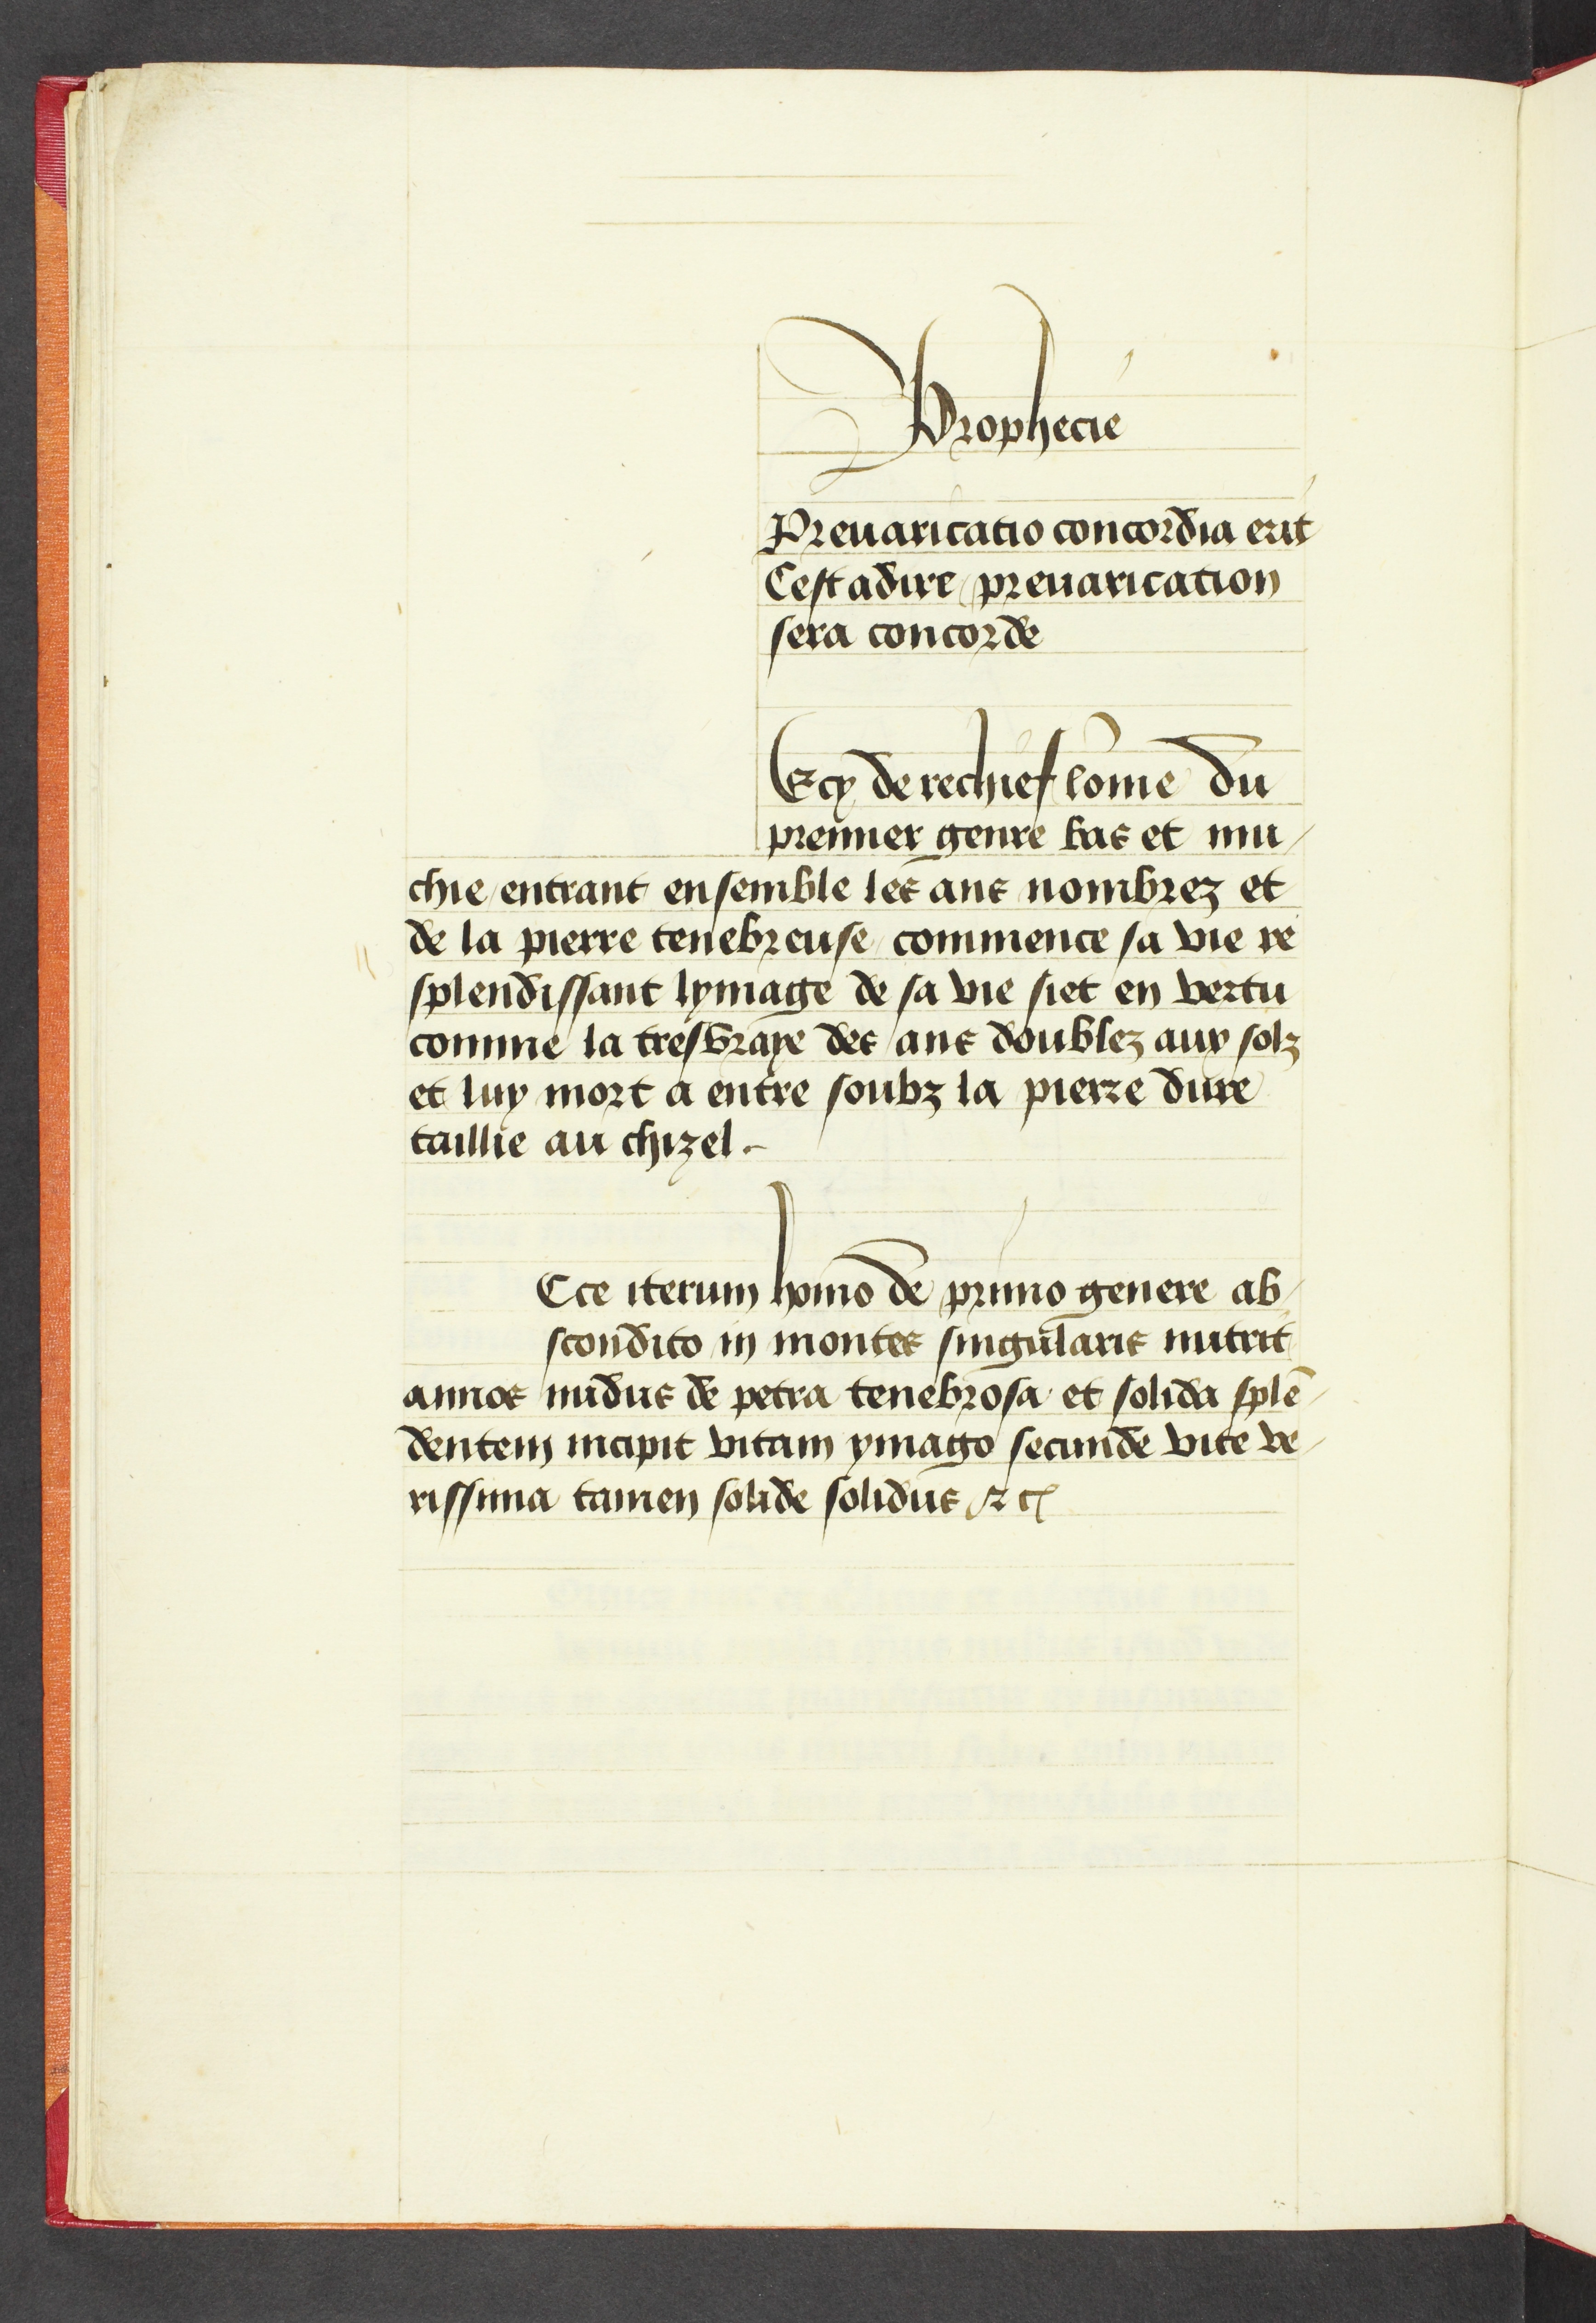 Prophecie
Preuaricatio concordia erit
Cest adire preuarication
sera concorde
Ecy de rechief lome du
premier genre bas et mu/
chie/entrant ensemble les ans nombrez et
de la pierre tenebreuse/commence sa vie re
splendissant lymage de sa vie siet en vertu
comme la tresvraye des ans doublez aux solz
et luy mort a entre soubz la pierre dure
taillie au chizel.
Ecce iterum homo de primo genere ab/
scondito in montes singularis nutrit
annos nudus de petra tenebrosa et solida splē/
dentem incipit vitam ymago secunde vite ve/
rissima tamen solide solidus